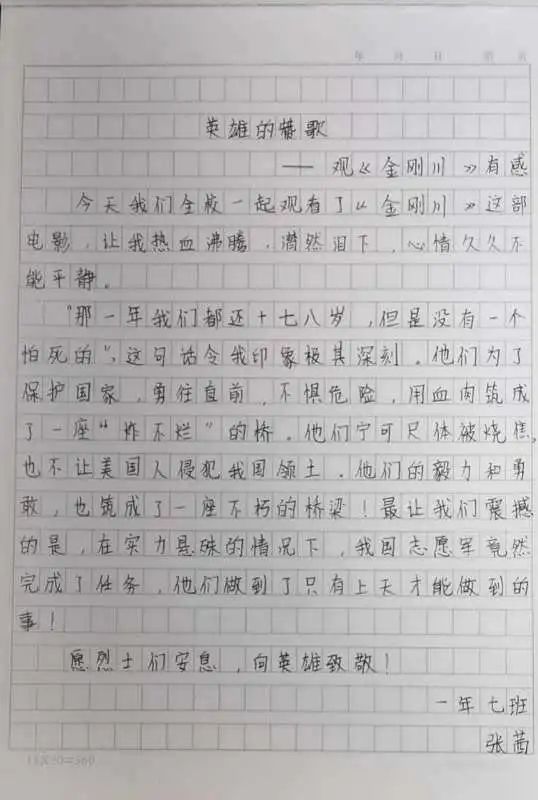 年 月 日
英雄的赞歌
—— 观《金刚川》有感
今天我们全校一起观看了《金刚川》这部
电影，让我热血沸腾，潸然泪下，心情久久不
能平静。
“那一年我们都还十七八岁，但是没有一个
怕死的”，这句话令我印象极其深刻。他们为了
保护国家，勇往直前，不惧危险，用血肉筑成
了一座“炸不烂”的桥。他们宁可尺体被烧焦，
也不让美国人侵犯我国领土。他们的毅力和勇
敢，也筑成了一座不朽的桥梁！最让我们震撼
的是，在实力悬殊的情况下，我国志愿军竟然
完成了任务，他们做到了只有上天才能做到的
事！
愿烈士们安息，向英雄致敬！
一年七班
张茜
18X20=360